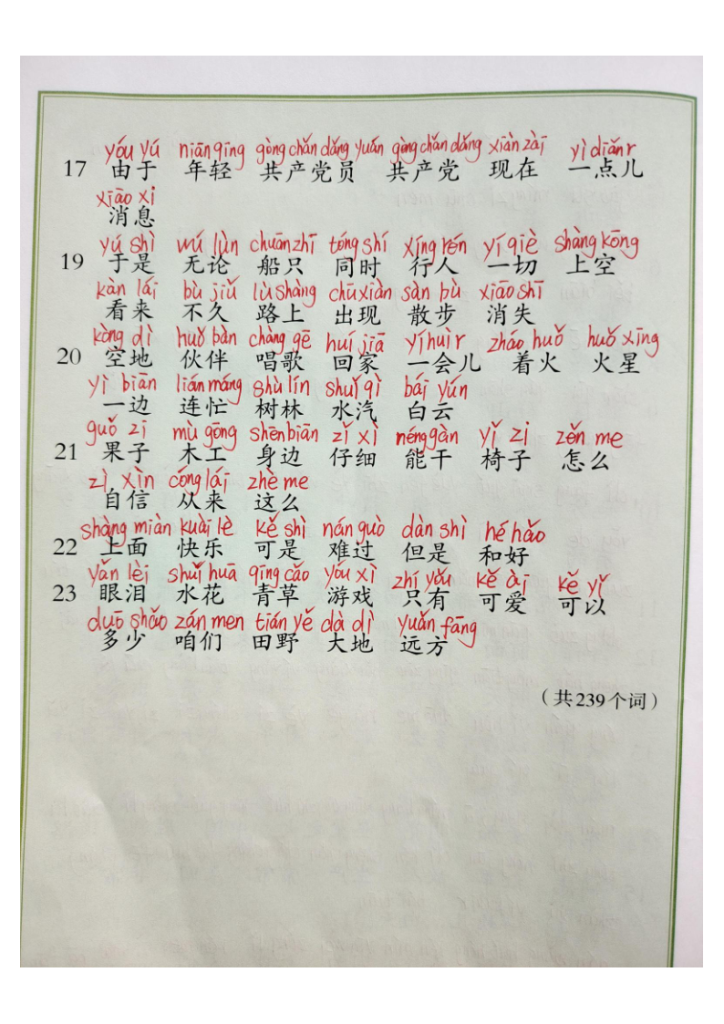 yóu yú niān qīng gòng chǎn dǎng yuán gòng chǎn dǎng xiàn zài yì diǎnr
17 由于 年轻 共产党员 共产党 现在 一点儿
xiāo xi
消息
yú shì wú lùn chuán zhī tóng shí xíng rén yí qiè shàng kōng
19 于是 无论 船只 同时 行人 一切 上空
kàn lái bù jiǔ lù shàng chū xiàn sàn bù xiāo shī
看来 不久 路上 出现 散步 消失
kòng dì huǒ bàn chàng gē huí jiā yí huìr zháo huǒ huǒ xīng
20 空地 伙伴 唱歌 回家 一会儿 着火 火星
yì biān lián máng shù lín shuǐ qì bái yún
一边 连忙 树林 水汽 白云
guǒ zi mù gōng shēn biān zǐ xì néng gàn yǐ zi zěn me
21 果子 木工 身边 仔细 能干 椅子 怎么
zì xìn cóng lái zhè me
自信 从来 这么
shàng miàn kuài lè kě shì nán guò dàn shì hé hǎo
22 上面 快乐 可是 难过 但是 和好
yǎn lèi shuǐ huā qīng cǎo yóu xì zhí yǒu kě ài kě yǐ
23 眼泪 水花 青草 游戏 只有 可爱 可以
duō shǎo zán men tián yě dà dì yuǎn fāng
多少 咱们 田野 大地 远方
（共239个词）